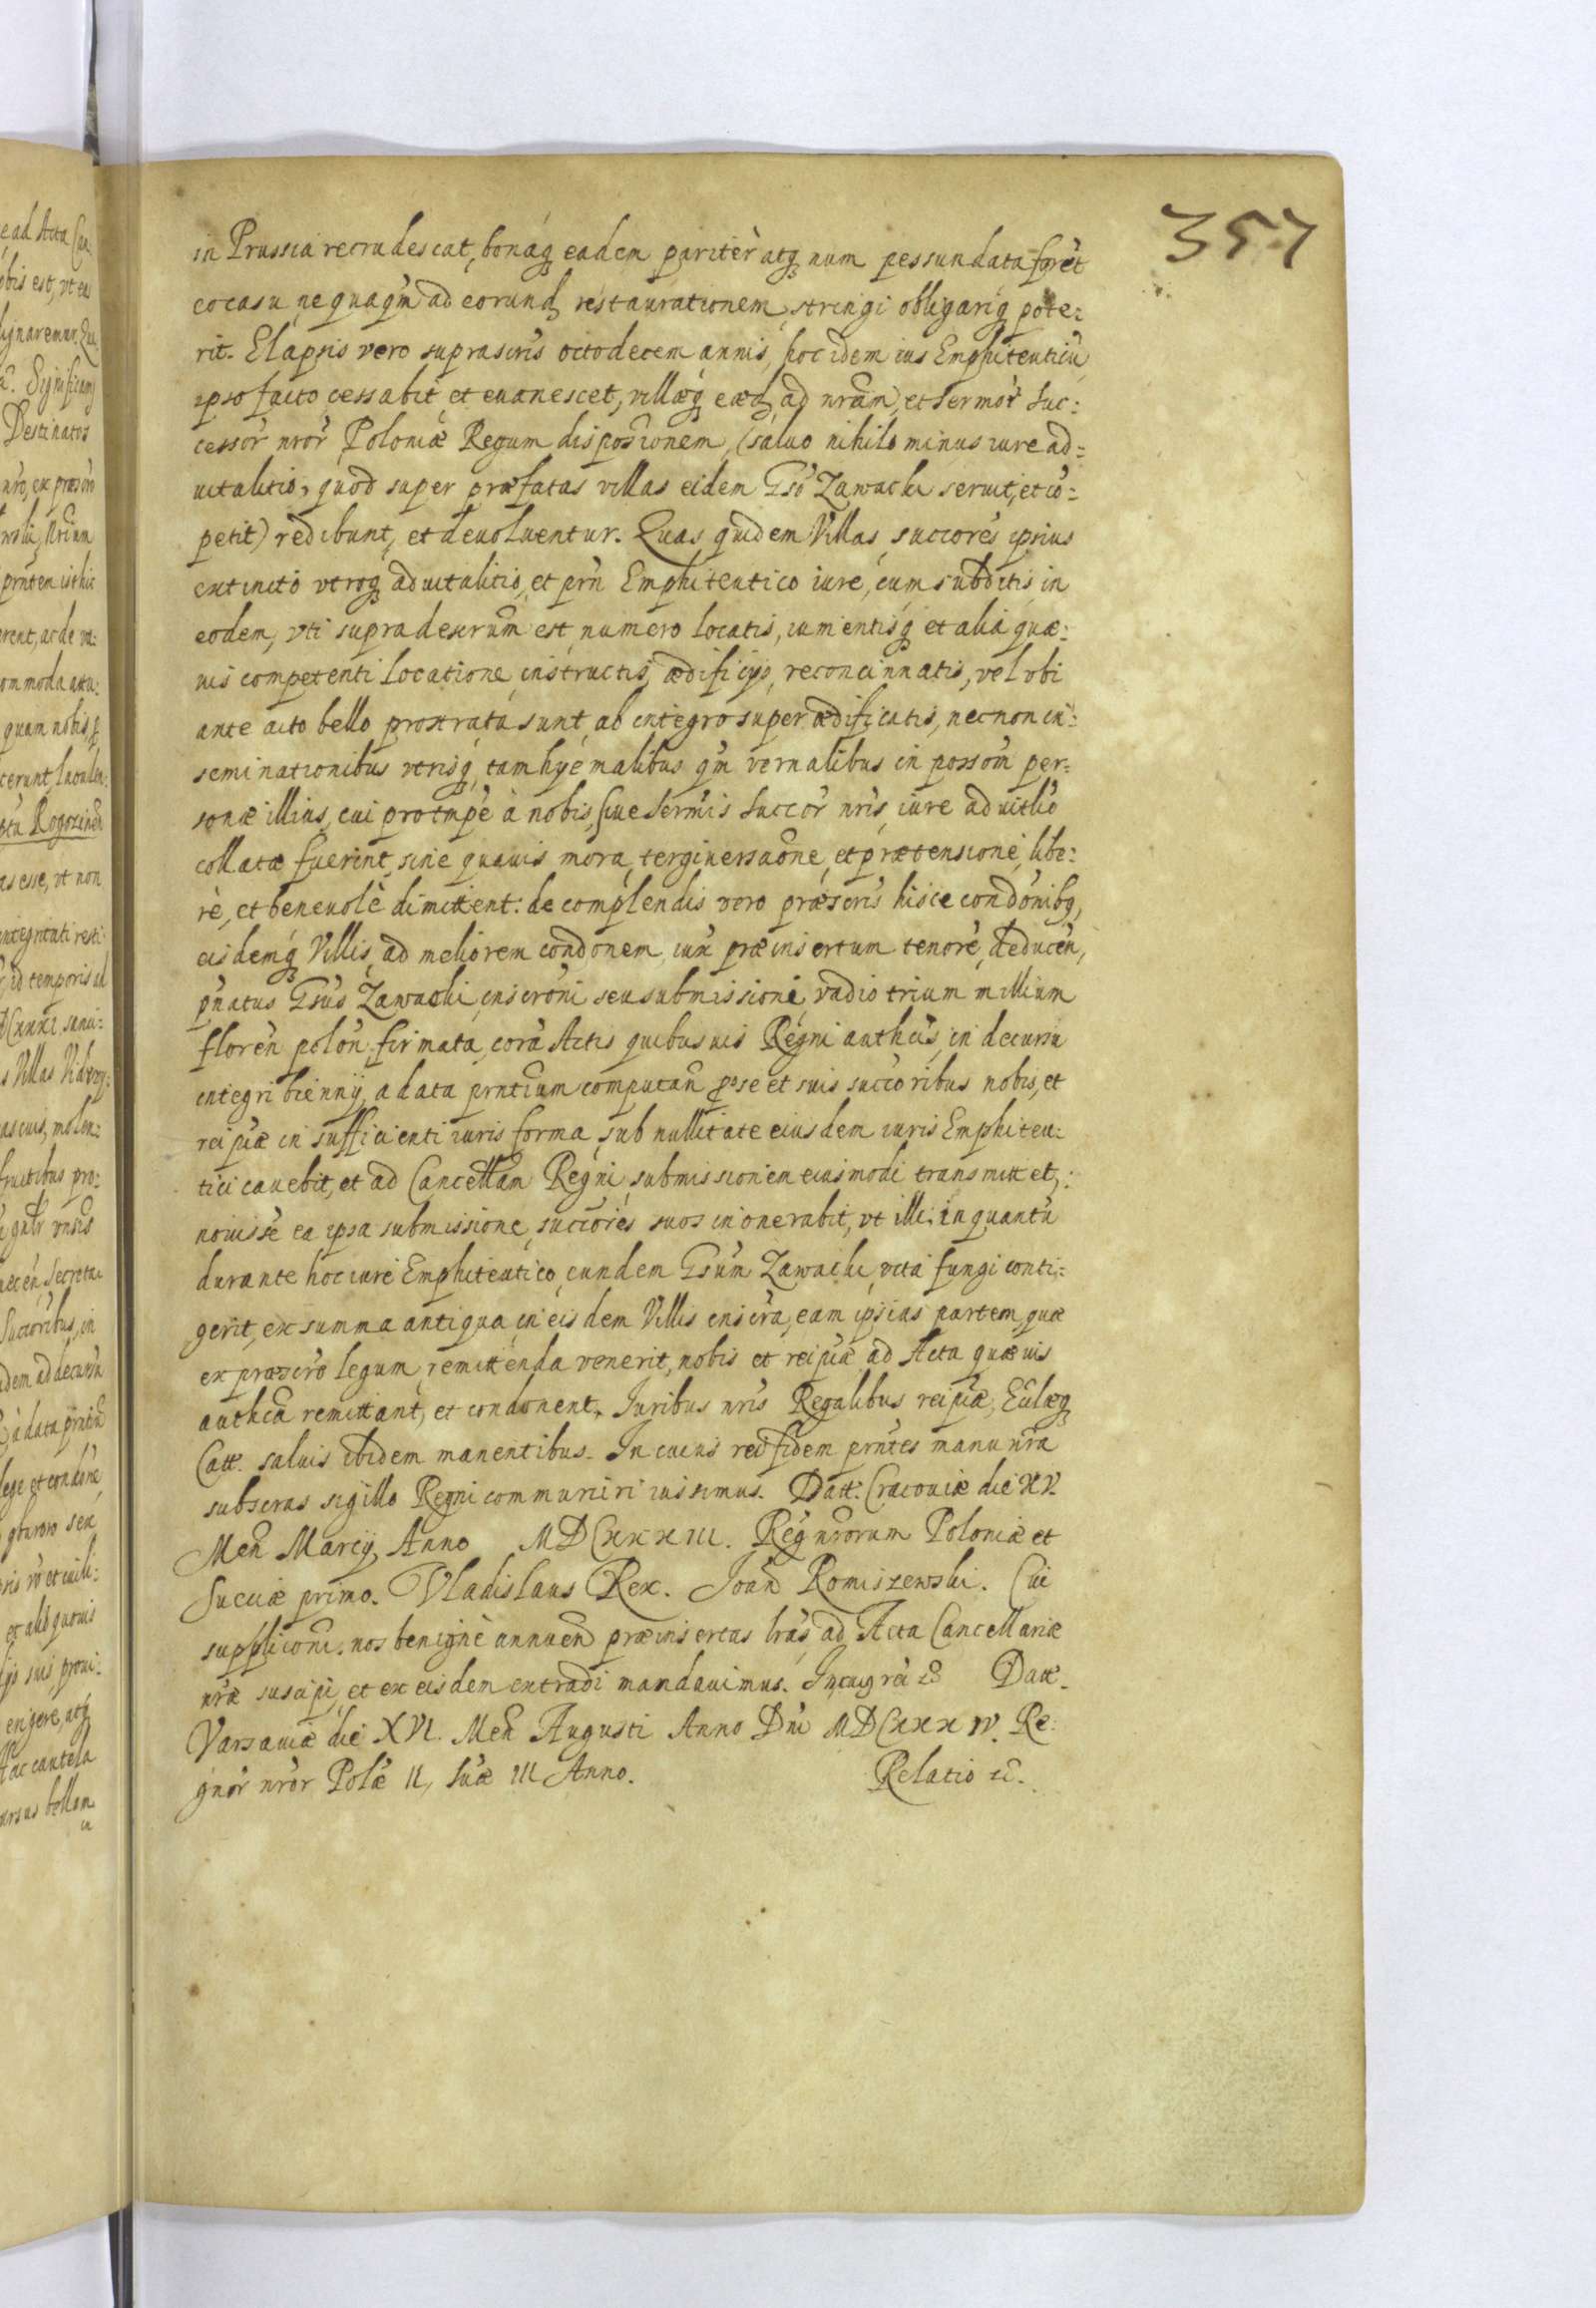 357
in Prussia recrudescat, bonaq́ eadem pariter atq́ num pessundata foret
eo casu nequaq̃m ad eorund restaurationem stringi obligariq́ pote:
rit. Elapsis vero suprascris octodecem annis, hoc idem ius Emphiteuticũ
ipso facto cessabit, et euanescet, villæq́ eæd ad nrãm, et Sermor̃ Suc:
cessor̃ nror̃ Poloniæ Regum disposionem, (saluo nihilominus iure ad:
uitalitio, quod super præfatas villas eidem Gso Zawacki seruit, et cõ:
petit) redibunt, et deuoluentur. Quas quidem Villas, succores ipsius
extincto vtroq́ aduitalitio, et prñ Emphiteutico iure, cum subditis in
eodem, vti supra descrum est numero locatis, iumentisq́ et alia quæ:
uis competenti locatione instructis, ædificijs, reconcinnatis, vel vbi
ante acto bello prostrata sunt, ab integro superædificatis, necnon in:
seminationibus vtrisq́ tam hyemalibus q̃m vernalibus in possom̃ per:
sonæ illius, cui pro tmpe à nobis, siue Sermis Succor̃ nris, iure aduitlio
collatæ fuerint, sine quauis mora, tergiuersaõne, et prætensione, libe:
rè, et beneuolè dimittent: de complendis vero præscris hisce condonibq́,
eisdemq́ Villis, ad meliorem condonem, iux̃ præinsertum tenorẽ, deducen,
pñatus Gsus Zawacki, inscroñi seu submissione, vadio trium millium
floreñ poloñ firmata, corã Actis quibusuis Regni autheĩs, in decursu
integri biennij, a data prñtium computañ pro se et suis succoribus nobis, et
reipcæ in sufficienti iuris forma, sub nullitate eiusdem iuris Emphiteu:
tici cauebit, et ad Cancellãm Regni, submissionem eiusmodi transmittet,:
nouisse ea ipsa submissione, succores suos inonerabit, vt illi, in quantũ
durante hoc iure Emphiteutico, eundem Gsum Zawacki, vita fungi conti:
gerit, ex summa antiqua in eisdem Villis inscra, eam ipsius partem, quæ
ex præscro legum, remittenda venerit, nobis et reipcæ ad Acta quæuis
authca remittant, et condonent. Iuribus nris Regalibus reipcæ, Eclæq́
Catt. saluis ibidem manentibus. In cuius rei fidem prñtes manu nra
subscras sigillo Regni communiri iussimus. Datt. Cracouiæ die XV.
Meñ Marcij, Anno MDCXXXIII. Reg nrorum Poloniæ et
Sueciæ primo. Vladislaus Rex. Joañ Romiszewski. Cui
supplicõni, nos benignè annueñ præinsertas lrãs, ad Acta Cancellariæ
nræ suscipi, et ex eisdem extradi mandauimus. In cuius rei &c Datt.
Varsauiæ die XVI. Meñ Augusti Anno Dni MDCXXXIV. Re:
gnor̃ nror̃ Polæ II, Suæ III Anno. Relatio &c.